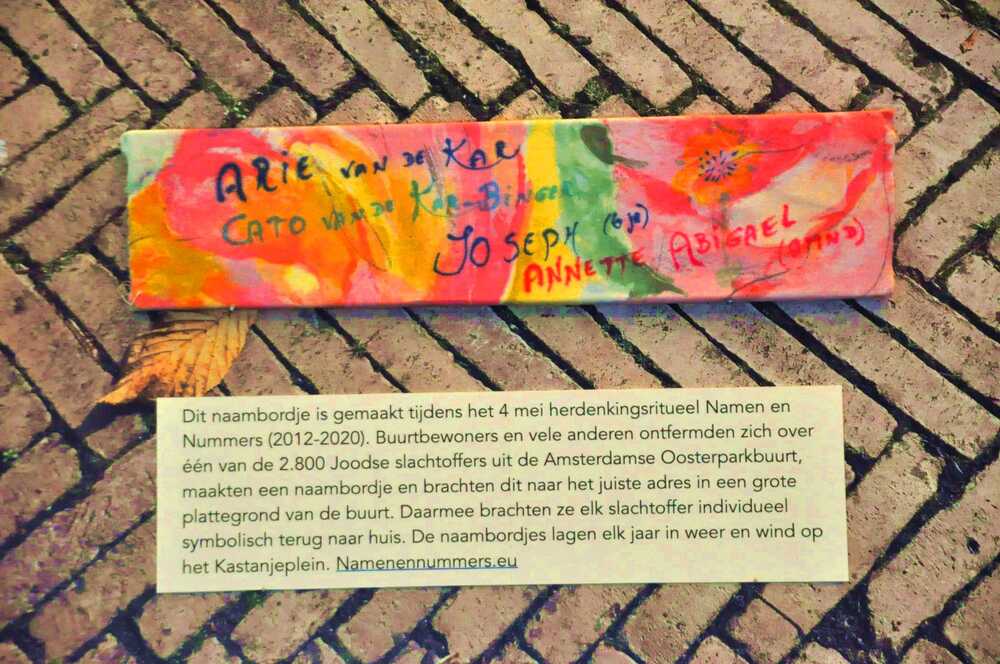 ARIE VAN DE KAR
CATO VAN DE KAR-BINGER
JOSEPH (6 JR)
ANNETTE ABIGAEL
Dit naambordje is gemaakt tijdens het 4 mei herdenkingsritueel Namen en
Nummers (2012-2020). Buurtbewoners en vele anderen ontfermden zich over
één van de 2.800 Joodse slachtoffers uit de Amsterdamse Oosterparkbuurt,
maakten een naambordje en brachten dit naar het juiste adres in een grote
plattegrond van de buurt. Daarmee brachten ze elk slachtoffer individueel
symbolisch terug naar huis. De naambordjes lagen elk jaar in weer en wind op
het Kastanjeplein. Namenennummers.eu